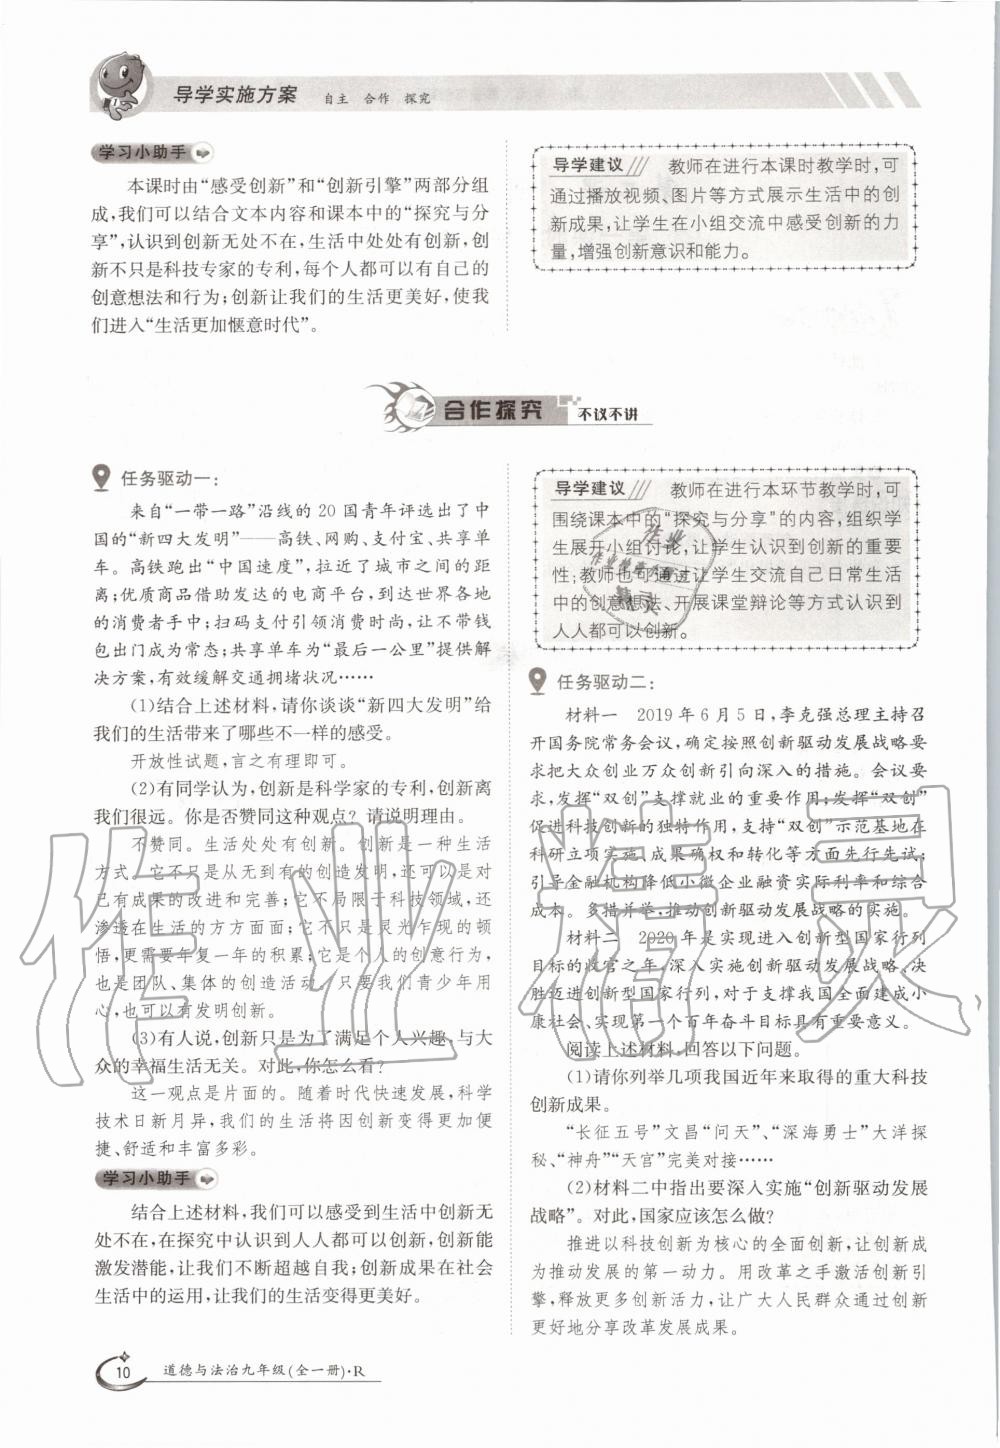 导学实施方案 自主 合作 探究
学习小助手
本课时由“感受创新”和“创新引擎”两部分组
成,我们可以结合文本内容和课本中的“探究与分
享”,认识到创新无处不在,生活中处处有创新,创
新不只是科技专家的专利,每个人都可以有自己的
创意想法和行为;创新让我们的生活更美好,使我
们进入“生活更加惬意时代”。
导学建议 教师在进行本课时教学时,可
通过播放视频、图片等方式展示生活中的创
新成果,让学生在小组交流中感受创新的力
量,增强创新意识和能力。
合作探究 不议不讲
任务驱动一:
来自“一带一路”沿线的 20 国青年评选出了中
国的“新四大发明”——高铁、网购、支付宝、共享单
车。高铁跑出“中国速度”,拉近了城市之间的距
离;优质商品借助发达的电商平台,到达世界各地
的消费者手中;扫码支付引领消费时尚,让不带钱
包出门成为常态;共享单车为“最后一公里”提供解
决方案,有效缓解交通拥堵状况……
(1)结合上述材料,请你谈谈“新四大发明”给
我们的生活带来了哪些不一样的感受。
开放性试题,言之有理即可。
(2)有同学认为,创新是科学家的专利,创新离
我们很远。你是否赞同这种观点?请说明理由。
不赞同。生活处处有创新。创新是一种生活
方式,它不只是从无到有的创造发明,还可以是对
已有成果的改进和完善;它不局限于科技领域,还
渗透在生活的方方面面;它不只是灵光乍现的顿
悟,更需要年复一年的积累;它是个人的创意行为,
也是团队、集体的创造活动。只要我们青少年用
心,也可以有发明创新。
(3)有人说,创新只是为了满足个人兴趣,与大
众的幸福生活无关。对此,你怎么看?
这一观点是片面的。随着时代快速发展,科学
技术日新月异,我们的生活将因创新变得更加便
捷、舒适和丰富多彩。
学习小助手
结合上述材料,我们可以感受到生活中创新无
处不在,在探究中认识到人人都可以创新,创新能
激发潜能,让我们不断超越自我;创新成果在社会
生活中的运用,让我们的生活变得更美好。
导学建议 教师在进行本环节教学时,可
围绕课本中的“探究与分享”的内容,组织学
生展开小组讨论,让学生认识到创新的重要
性;教师也可通过让学生交流自己日常生活
中的创意想法、开展课堂辩论等方式认识到
人人都可以创新。
任务驱动二:
材料一 2019 年 6 月 5 日,李克强总理主持召
开国务院常务会议,确定按照创新驱动发展战略要
求把大众创业万众创新引向深入的措施。会议要
求,发挥“双创”支撑就业的重要作用;发挥“双创”
促进科技创新的独特作用,支持“双创”示范基地在
科研立项实施、成果确权和转化等方面先行先试;
引导金融机构降低小微企业融资实际利率和综合
成本。多措并举,推动创新驱动发展战略的实施。
材料二 2020 年是实现进入创新型国家行列
目标的收官之年,深入实施创新驱动发展战略,决
胜迈进创新型国家行列,对于支撑我国全面建成小
康社会、实现第一个百年奋斗目标具有重要意义。
阅读上述材料,回答以下问题。
(1)请你列举几项我国近年来取得的重大科技
创新成果。
“长征五号”文昌“问天”、“深海勇士”大洋探
秘、“神舟”“天宫”完美对接……
(2)材料二中指出要深入实施“创新驱动发展
战略”。对此,国家应该怎么做?
推进以科技创新为核心的全面创新,让创新成
为推动发展的第一动力。用改革之手激活创新引
擎,释放更多创新活力,让广大人民群众通过创新
更好地分享改革发展成果。
10 道德与法治九年级(全一册)·R
作业精灵